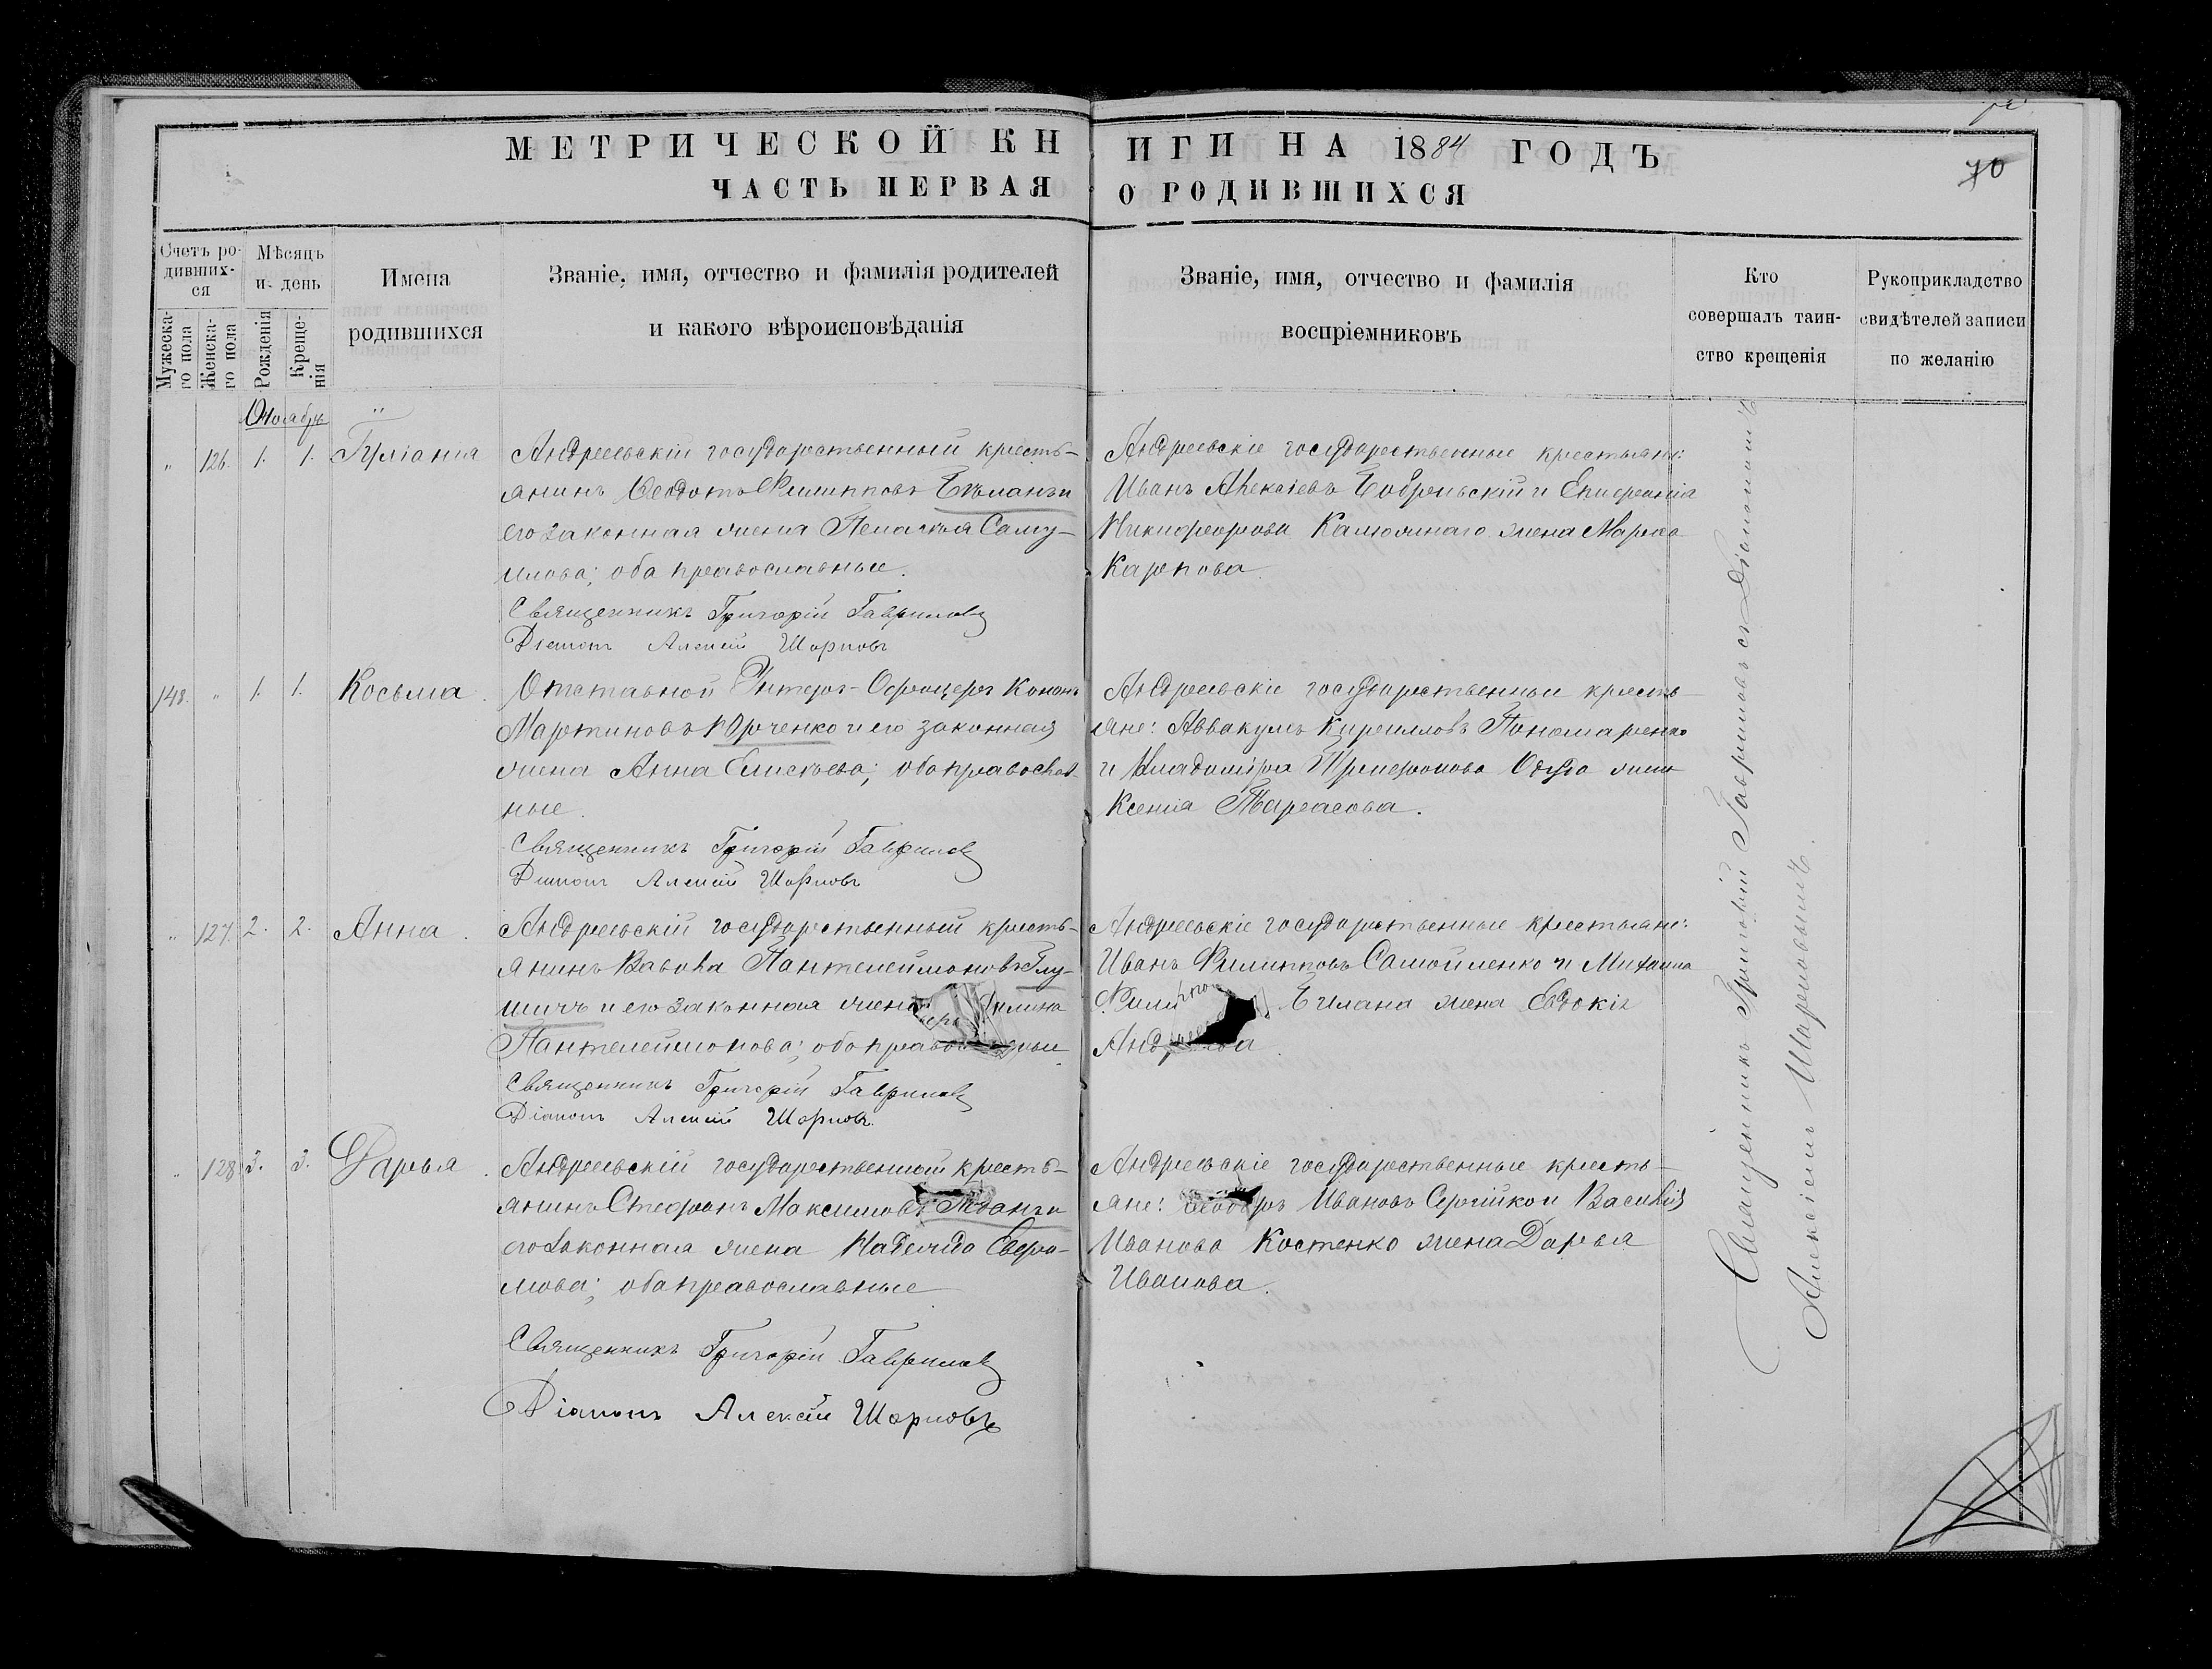 МЕТРИЧЕСКОЙ КНИГИ НА 1884 ГОДЪ
70
ЧАСТЬ ПЕРВАЯ О РОДИВШИХСЯ
Счетъ родившихся
Мужескаго пола
Женскаго пола
Мѣсяцъ и день
Рожденія
Крещенія
Имена
родившихся
Званіе, имя, отчество и фамилія родителей
и какого вѣроисповѣданія
Званіе, имя, отчество и фамилія
воспріемниковъ
Кто
совершалъ таин-
ство крещенія
Рукоприкладство
свидѣтелей записи
по желанію
Октябрь
" 126. 1. 1. Іуліанія
Андреевскій государственный кресть-
янинъ Ѳеодотъ Филипповъ и
его законная жена Пелагія Саму-
илова; оба православные.
Священникъ Григорій Гавриловъ
Діаконъ Алексій Шарповъ
Андреевскіе государственные крестьяне:
Иванъ Алексіевъ и
Никифорова жена Марѳа
Карпова.
148. " 1. 1. Косьма.
Отставной Унтеръ-Офицеръ Кононъ
Мартиновъ Юрченко и его законная
жена Анна Елисѣева; оба православ-
ные.
Священникъ Григорій Гавриловъ
Діаконъ Алексій Шарповъ
Андреевскіе государственные кресть-
яне: Аввакумъ Кирилловъ Пономаренко
и Владиміра Трифонова жена
Ксенія Тарасова.
" 127. 2. 2. Анна.
Андреевскій государственный кресть-
янинъ Вавила Пантелеймоновъ Глу-
щичъ и его законная жена
Пантелеймонова; оба православные.
Священникъ Григорій Гавриловъ
Діаконъ Алексій Шарповъ.
Андреевскіе государственные крестьяне:
Иванъ Филипповъ Самойленко и Михаила
Филиппова жена Евдокія
Андреева.
" 128 3. 3. Дарья.
Андреевскій государственный кресть-
янинъ Стефанъ Максимовъ и
его законная жена Надежда Евфи-
мова; оба православные
Священникъ Григорій Гавриловъ
Діаконъ Алексій Шарповъ
Андреевскіе государственные кресть-
яне: Ѳеодоръ Ивановъ Сергійко и Василія
Иванова Костенко жена Дарья
Иванова.
Священникъ Григорій Гавриловъ съ Діакономъ
Алексіемъ Шарповымъ.